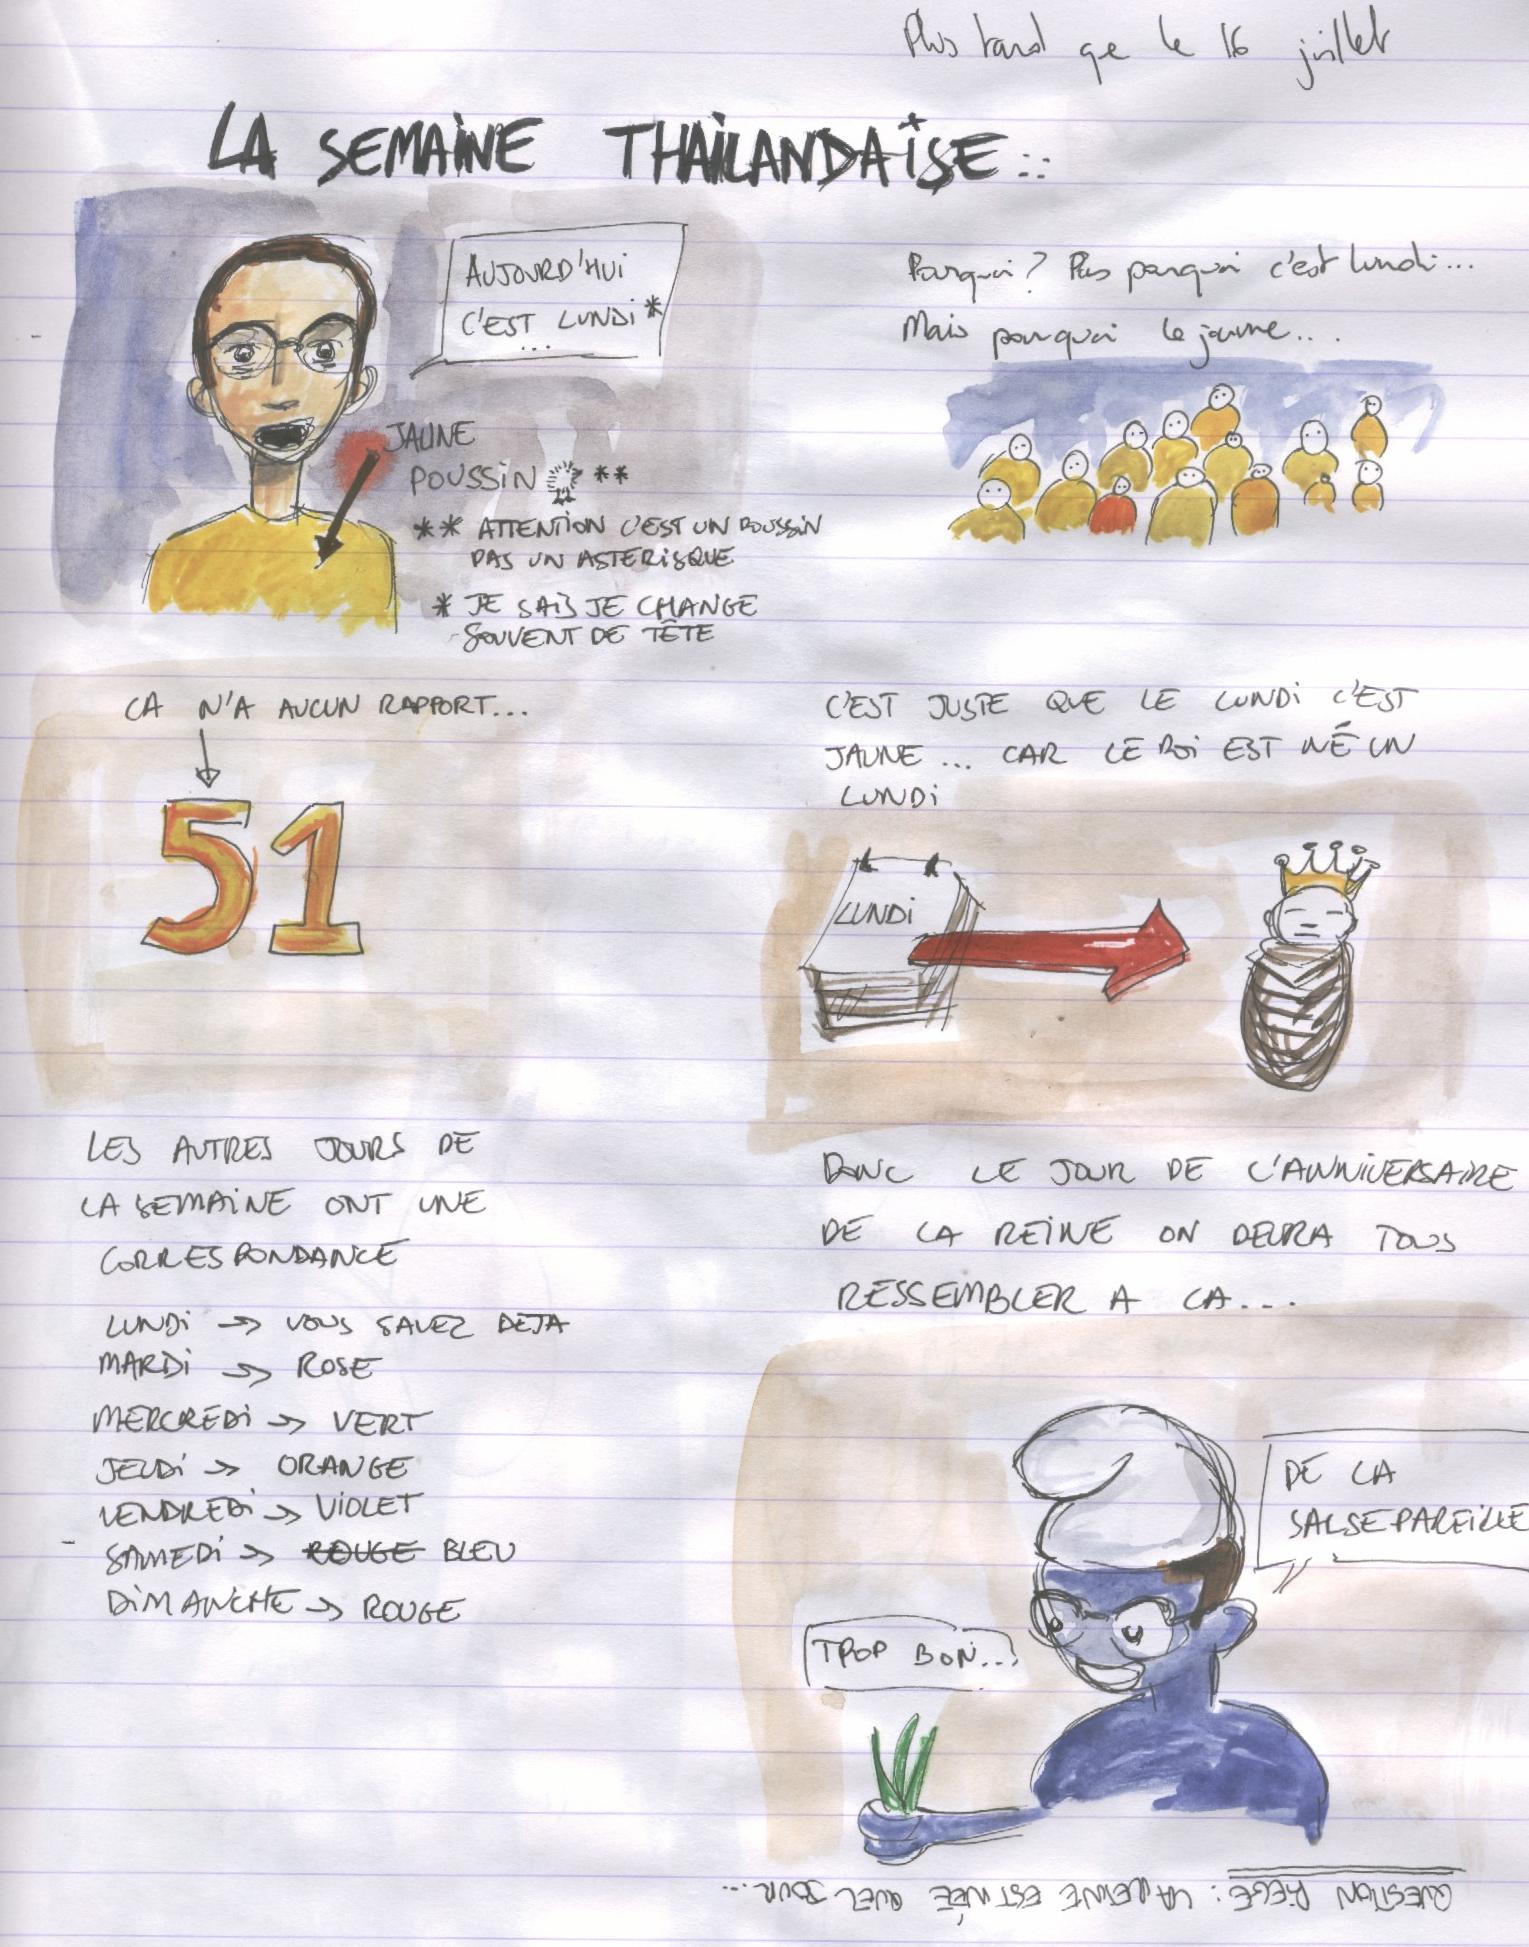 Plus tard que le 16 juillet
LA SEMAINE THAILANDAÏSE...
AUJOURD'HUI
C'EST LUNDI*
...
JAUNE
POUSSIN **
** ATTENTION C'EST UN POUSSIN
PAS UN ASTERISQUE
* JE SAIS JE CHANGE
SOUVENT DE TÊTE
Pourquoi? Pas pourquoi c'est lundi...
Mais pourquoi le jaune...
CA N'A AUCUN RAPPORT...
51
C'EST JUSTE QUE LE LUNDI C'EST
JAUNE... CAR LE ROI EST NÉ UN
LUNDI
LUNDI
LES AUTRES JOURS DE
LA SEMAINE ONT UNE
CORRESPONDANCE
LUNDI → VOUS SAVEZ DEJA
MARDI → ROSE
MERCREDI → VERT
JEUDI → ORANGE
VENDREDI → VIOLET
SAMEDI → ROUGE BLEU
DIMANCHE → ROUGE
DONC LE JOUR DE L'ANNIVERSAIRE
DE LA REINE ON DEVRA TOUS
RESSEMBLER A CA...
DE LA
SALSEPAREILLE
TROP BON...
QUESTION PIEGE: LA REINE EST NÉE QUEL JOUR...